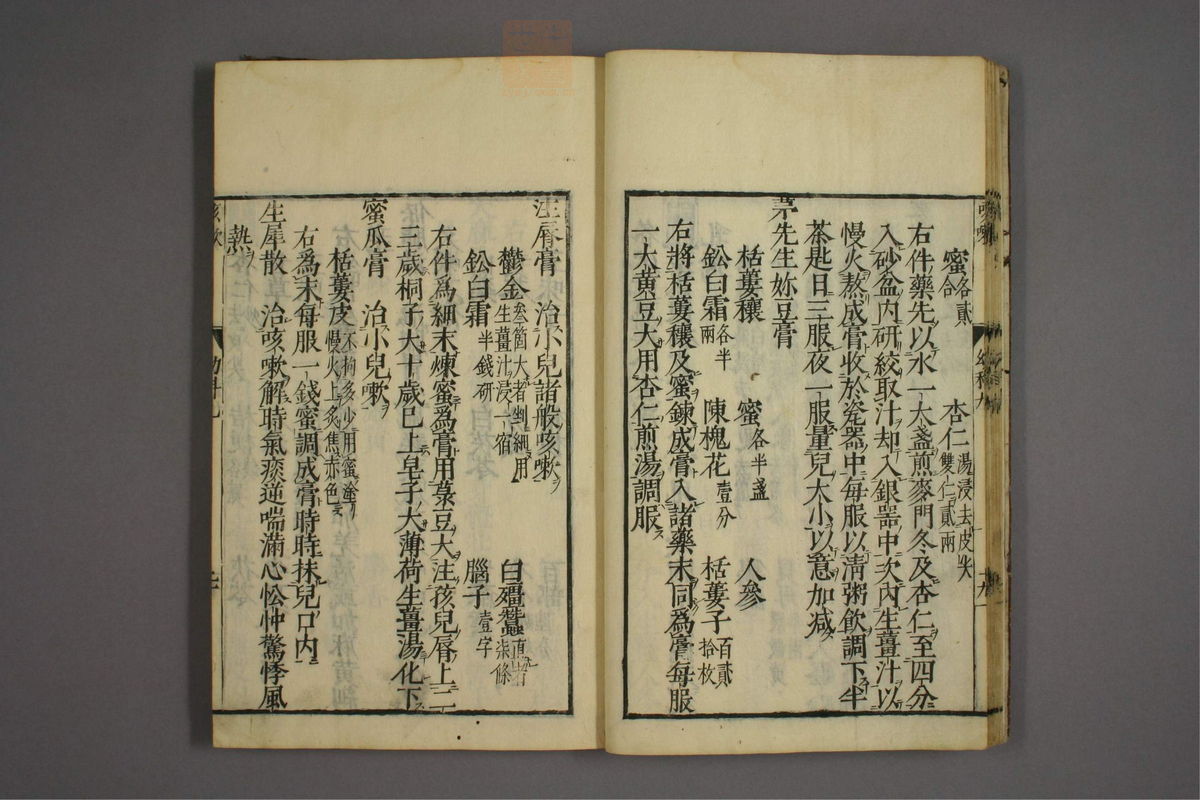 蜜各貳合　杏仁湯浸去皮尖雙仁貳兩
右件藥先以水一大盞煎麥門冬及杏仁至四分
入砂盆內研絞取汁却入銀器中次內生薑汁以
慢火熬成膏收於瓷器中每服以清粥飲調下半
茶匙日三服夜一服量兒大小以意加減
茅先生妳豆膏
栝蔞穰　蜜各半盞　人參
鈆白霜各半兩　陳槐花壹分　栝蔞子百貳拾枚
右將栝蔞穰及蜜鍊成膏入諸藥末同爲膏每服
一大黄豆大用杏仁煎湯調服
注脣膏　治小兒諸般咳嗽
鬱金叁箇大者剉細用生薑汁浸一宿　白殭蠶直者柒條
鈆白霜半錢研　腦子壹字
右件爲細末煉蜜爲膏用菉豆大注孩兒脣上二
三歲桐子大十歲已上皁子大薄荷生薑湯化下
蜜瓜膏　治小兒嗽
栝蔞皮不拘多少用蜜塗慢火上炙焦赤色
右爲末每服一錢蜜調成膏時時抹兒口內
生犀散　治咳嗽解時氣痰逆喘滿心忪忡驚悸風
熱